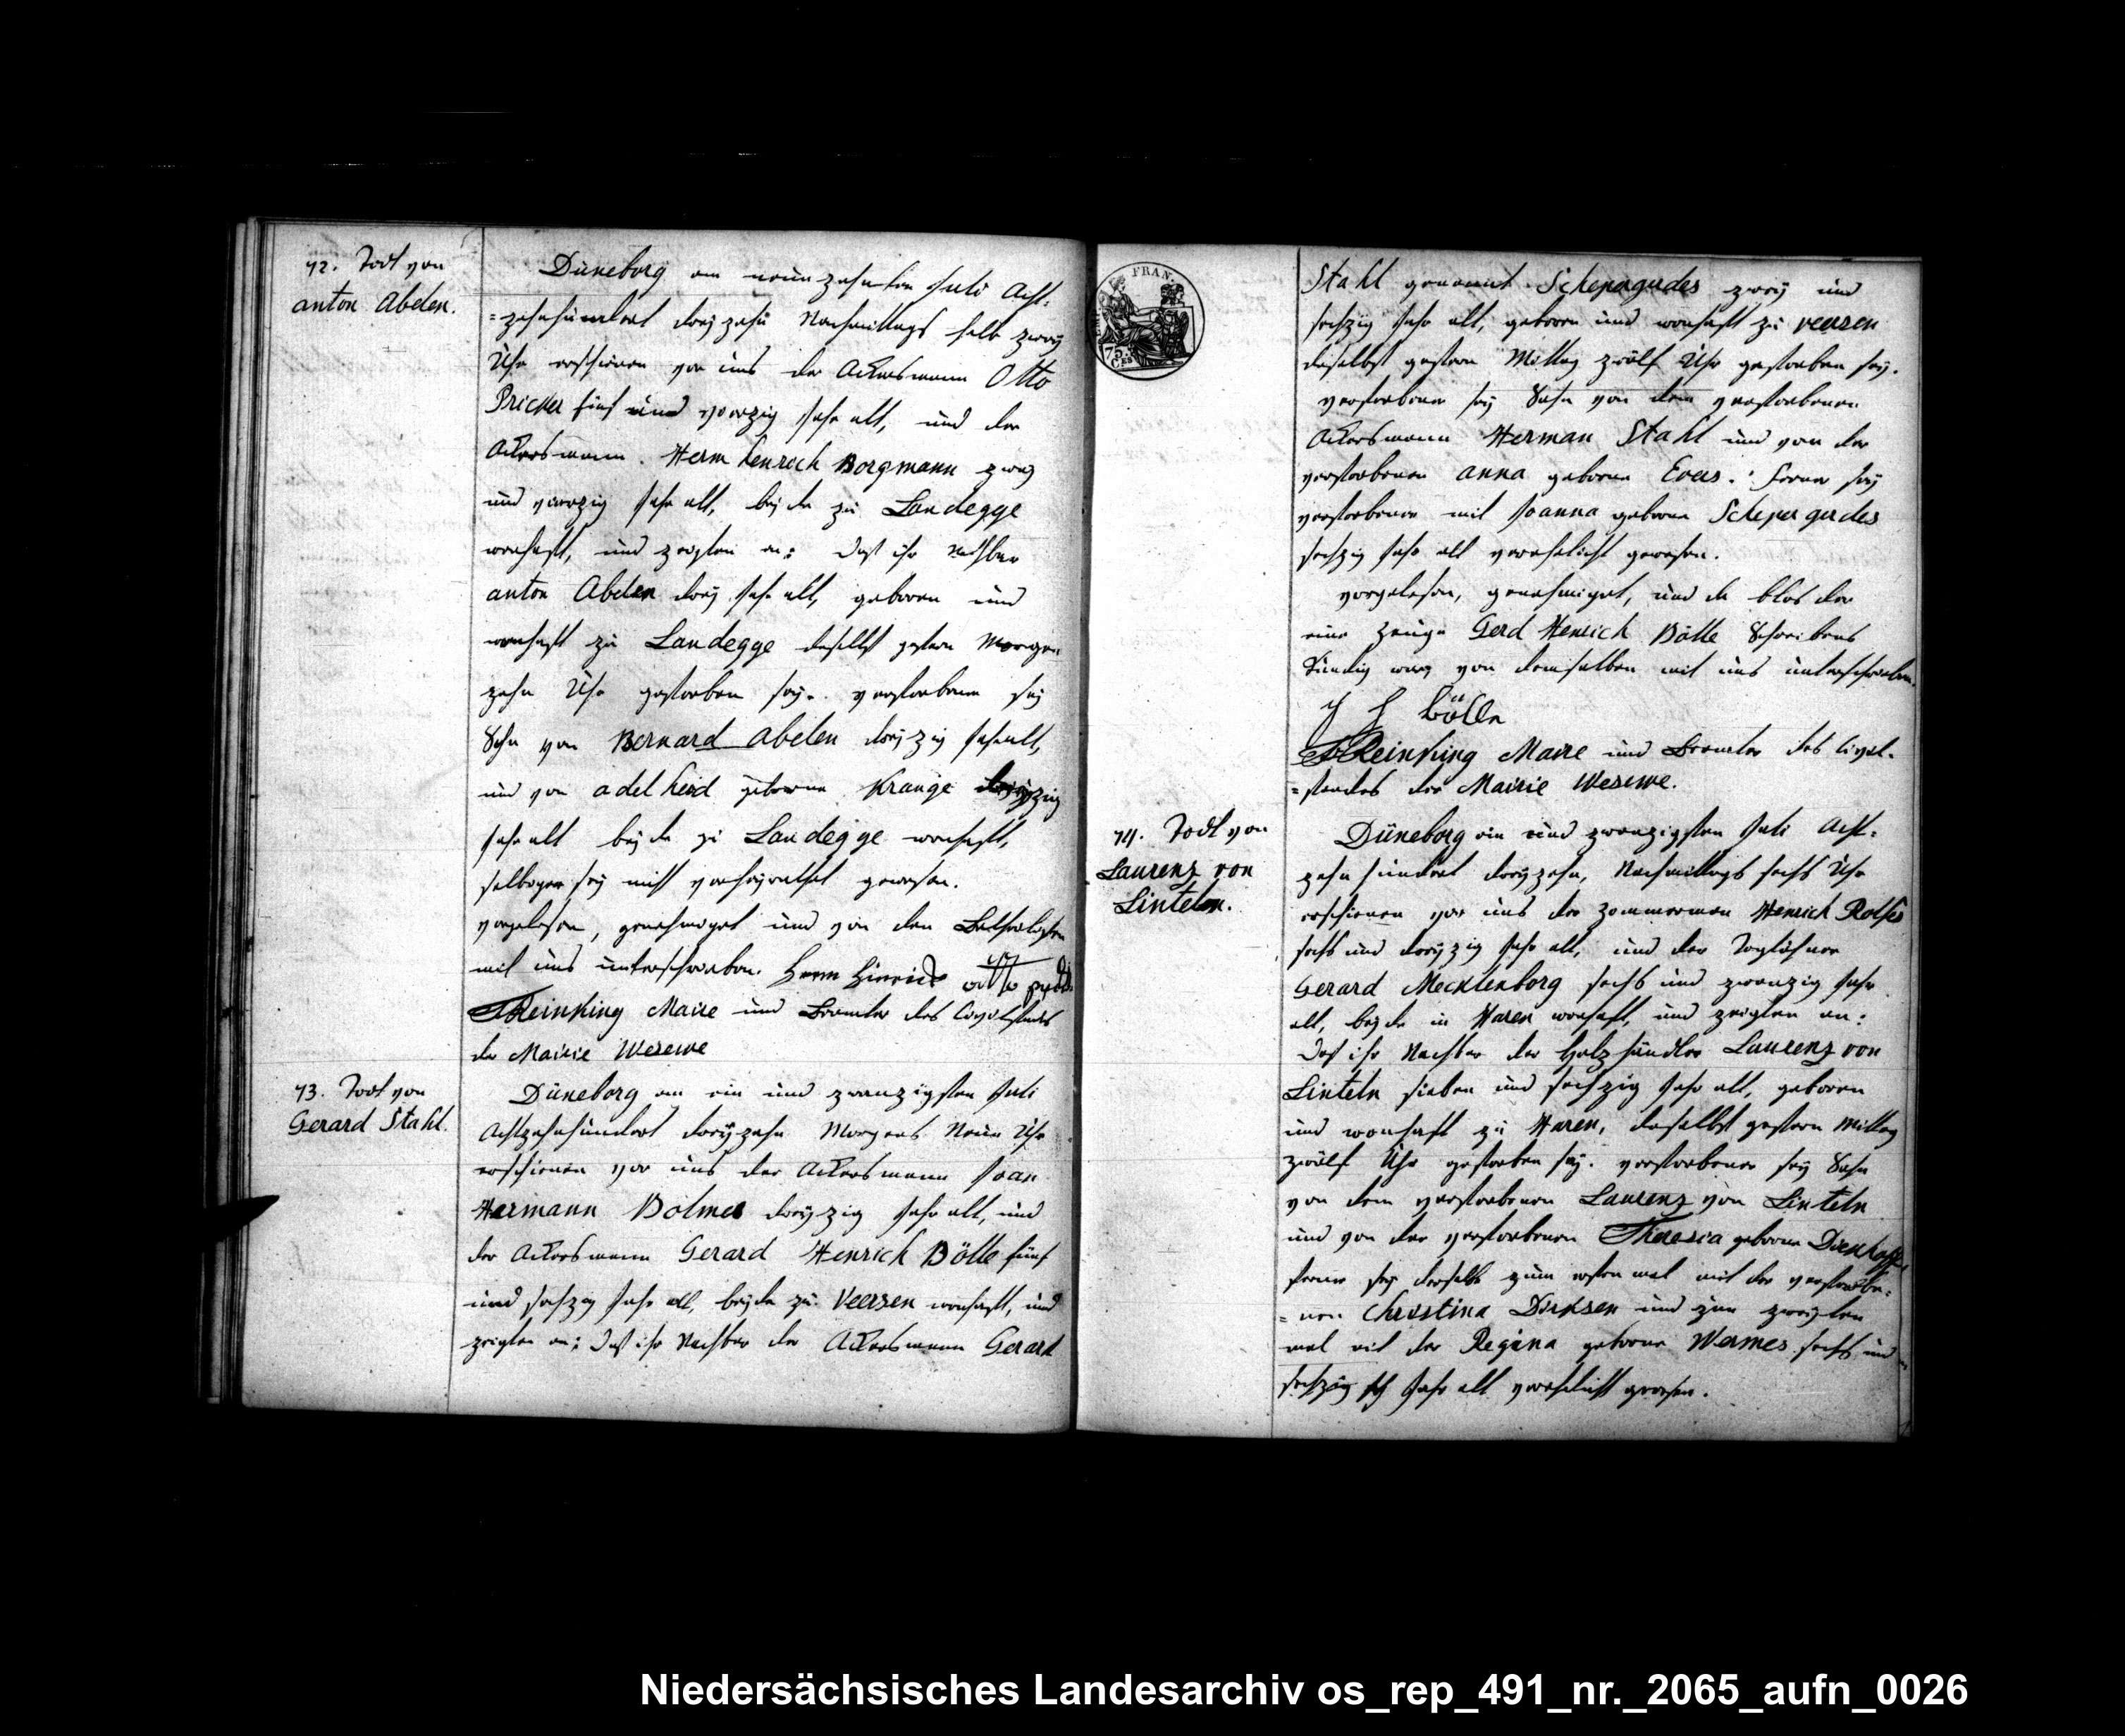 72. Todt von
anton Abelen.
Düneborg am neunzehnten Juli Acht-
=zehnhundert dreyzehn Nachmittags halb zwey
Uhr erschienen vor uns der Ackersmann Otto
Pricker fünf und vierzig Jahr alt, und der
Ackersmann Herm henrich Borgmann zwey
und vierzig Jahr alt, beyde zu Landegge
wonhaft, und zeigten an: daß ihr Nachbar
anton Abelen drey Jahr alt, geboren und
wonhaft zu Landegge daselbst gestern Morgen
zehn Uhr gestorben sey. verstorbener sey
Sohn von Bernard Abelen dreyzig Jahr alt,
und von adelheid geborne Krange dreyzig
Jahr alt beyde zu Landegge wonhaft,
selbiger sey nicht verheyrathet gewesen.
vorgelesen, genehmiget und von den Betheiligten
mit uns unterschrieben. Herm Hinrich otto
TReinking Maire und Beamter des Civilstandes
der Mairie Wesewe
73. Todt von
Gerard Stahl.
Düneborg am ein und zwanzigsten Juli
Achtzehnhundert dreyzehn Morgens Neun Uhr
erschienen vor uns der Ackersmann Joan
Harmann Bolmer dreyzig Jahr alt, und
der Ackersmann Gerard Henrich Bölle fünf
und sechzig Jahr alt, beyde zu Veersen wonhaft, und
zeigten an: Daß ihr Nachbar der Ackersmann Gerard
FRAN.
75.
CES
Stahl genannt Schepergerdes zwey und
sechzig Jahr alt, geboren und wonhaft zu veersen
daselbst gestern Mittag zwölf Uhr gestorben sey.
verstorbener sey Sohn von dem verstorbenen
Ackersmann Herman Stahl und von der
verstorbenen anna geborne Evers. ferner sey
verstorbener mit Joanna geborne Schepergerdes
sechzig Jahr alt verehelicht gewesen.
vorgelesen, genehmiget, und da blos der
eine Zeuge Gerd Henrich Bölle Schreibens
kundig war von demselben mit uns unterschrieben.
G H Bölle
TReinking Maire und Beamter des Civil-
=standes der Mairie Wesewe.
74. Todt von
Laurenz von
Linteln.
Düneborg ein und zwanzigsten Juli Acht-
zehn hundert dreyzehn, Nachmittags sechs Uhr
erschienen vor uns der Zimmerman Henrich Rolfes
sechs und dreyzig Jahr alt, und der Taglöhner
Gerard Mecklenborg sechs und zwanzig Jahr
alt, beyde in Haren wonhaft, und zeigten an:
Daß ihr Nachbar der Holzhändler Laurenz von
Linteln sieben und sechzig Jahr alt, geboren
und wonhaft zu Haren, daselbst gestern Mittag
zwölf Uhr gestorben sey. verstorbener sey Sohn
von dem verstorbenen Laurenz von Linteln
und von der verstorbenen Theresia geborne Dierkhoff,
ferner sey derselbe zum ersten mal mit der verstorbe-
=nen Christina Dirksen und zum zweyten
mal mit der Regina geborne Wermes sechs und
sechzig Jahr alt verehelicht gewesen.
Niedersächsisches Landesarchiv os_rep_491_nr._2065_aufn_0026